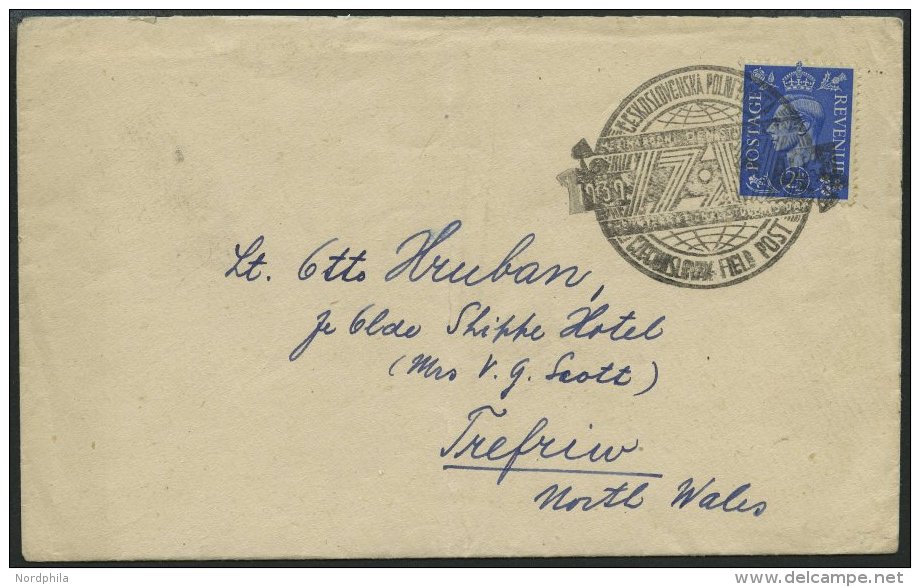 ČESKOSLOVENSKÁ POLNÍ
1939
CZECHOSLOVAK FIELD POST
POSTAGE
REVENUE
2½D
Lt. Otto Hruban,
Ye Olde Shippe Hotel
(Mrs V. G. Scott)
Trefriw
North Wales
Nordphila
delcampe.net